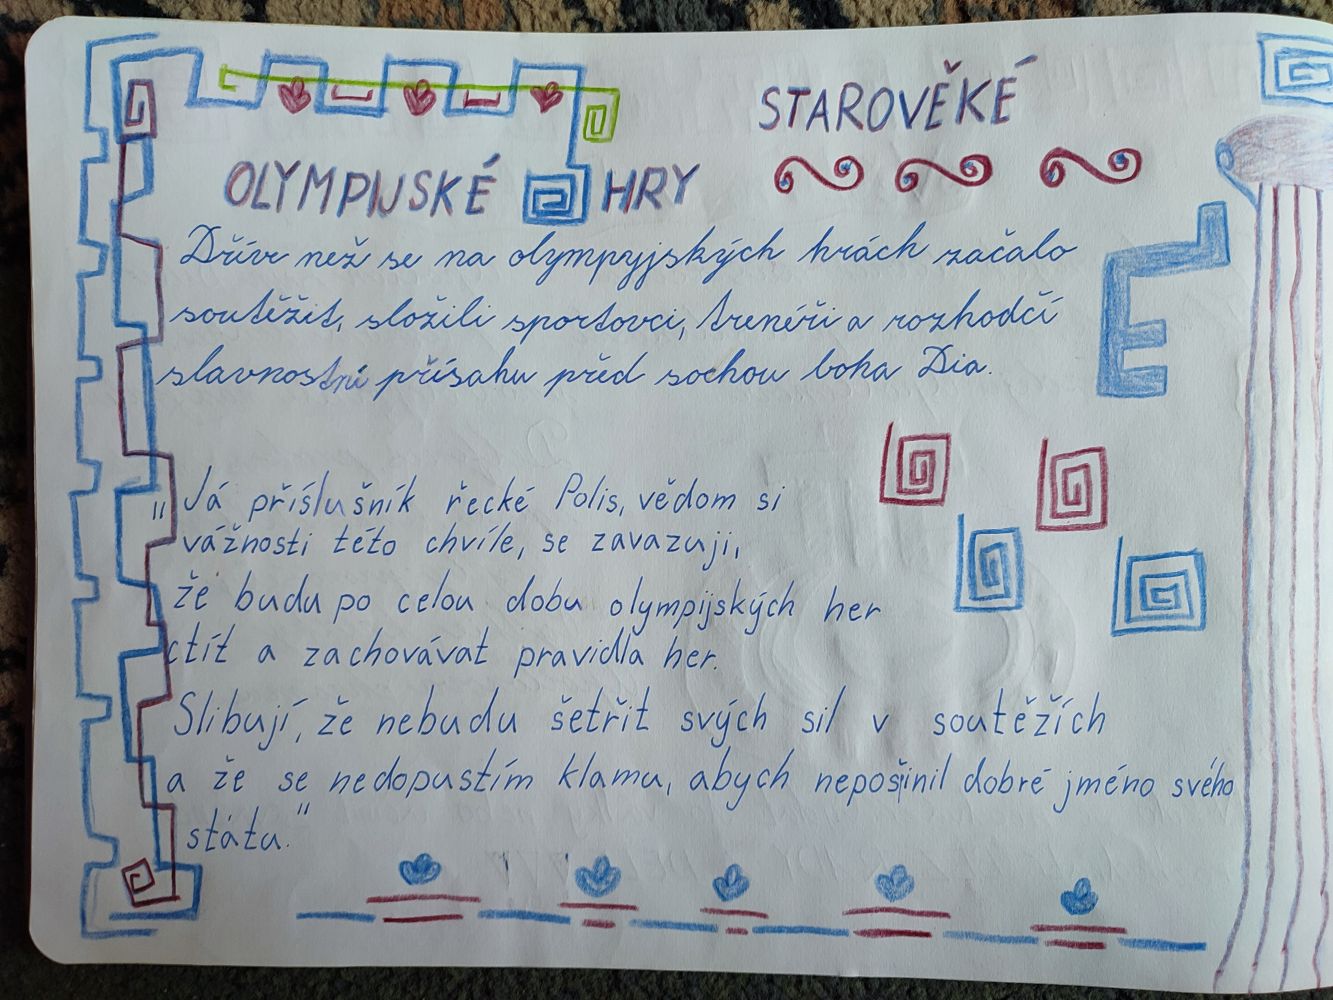 STAROVĚKÉ
OLYMPIJSKÉ HRY
Dřív než se na olympyjských hrách začalo
soutěžit, složili sportovci, trenéři a rozhodčí
slavnostní přísahu před sochou boha Dia.
„Já příslušník řecké Polis, vědom si
vážnosti této chvíle, se zavazuji,
že budu po celou dobu olympijských her
ctít a zachovávat pravidla her.
Slibují, že nebudu šetřit svých sil v soutěžích
a že se nedopustím klamu, abych nepošinil dobré jméno svého
státu."